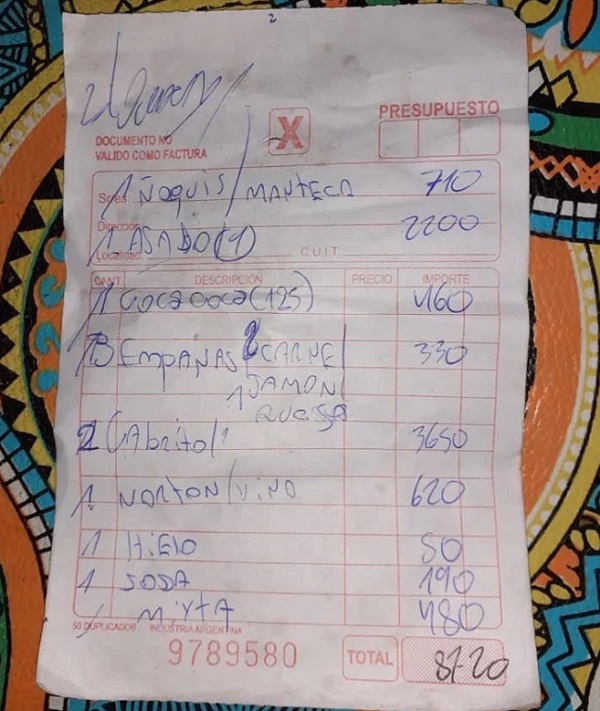 2
DOCUMENTO NO
VALIDO COMO FACTURA
X
PRESUPUESTO
Sres.
1 ÑOQUIS/MANTECA 710
Dirección
2200
1 ASADO (1)
Localidad
C.U.I.T.
CANT. DESCRIPCIÓN PRECIO IMPORTE
1 COCA COCA (125) 460
3 EMPANAS/2 CARNE/ 330
1 JAMON/
QUESO
2 CAbrito/1 3650
1 NORTON/VINO 620
1 HiElO 50
1 SODA 190
1 MiXTA 480
50 DUPLICADOS INDUSTRIA ARGENTINA
9789580
TOTAL 8720